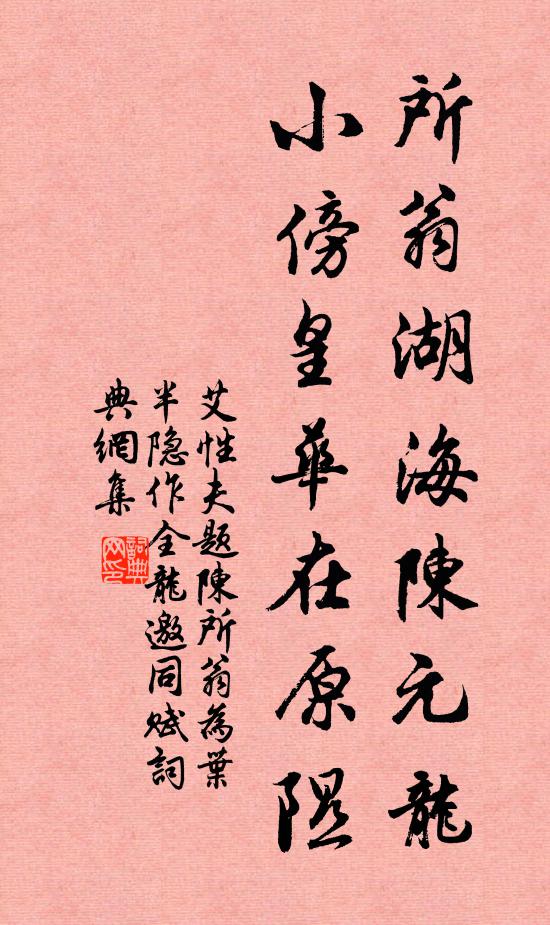 所翁湖海陳元龍
小傍皇華在原隰
艾性夫題陳所翁為葉
半隐作全龍邀同赋詞
典網集
詞典
网印